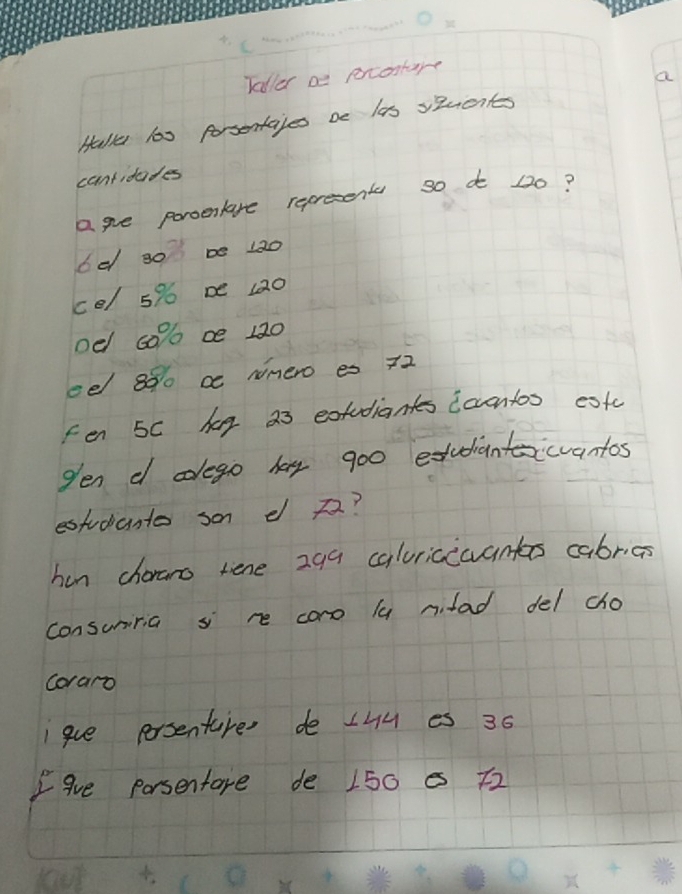 Taller De Porcentare
Halla los Porsentajes De las siguientes
cantidades
a que porsentare representa 30 de 120?
b el 30% De 120
c el 5% De 120
D el 60% De 120
e el 80% De número es 72
F en 5C hay 23 estudiantes ¿cuantos este
g en el colegio hay 900 estudiantes ¿cuantos
estudiantes son el 72?
h un chocaro tiene 299 calorica ¿cuantas cabrias
consumiria si me como la mitad del cho
coraro
i que porsentare de 144 es 36
j que Porsentare de 150 es 72